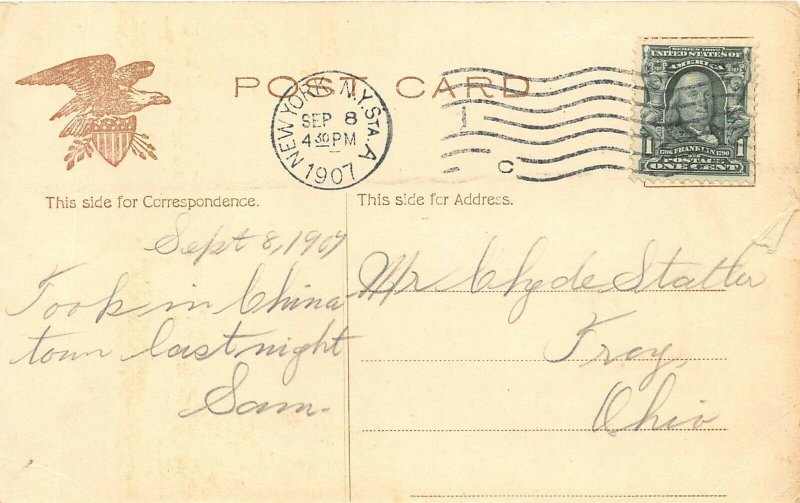 POST CARD
NEW YORK, N.Y. STA. A
SEP 8
4 30 PM
1907
C
SERIES 1902
UNITED STATES OF
AMERICA
1 1706 FRANKLIN 1790 1
POSTAGE
ONE CENT
This side for Correspondence.
This side for Address.
Sept 8, 1907
Took in China
town last night
Sam.
Mr Clyde Statler
Troy,
Ohio